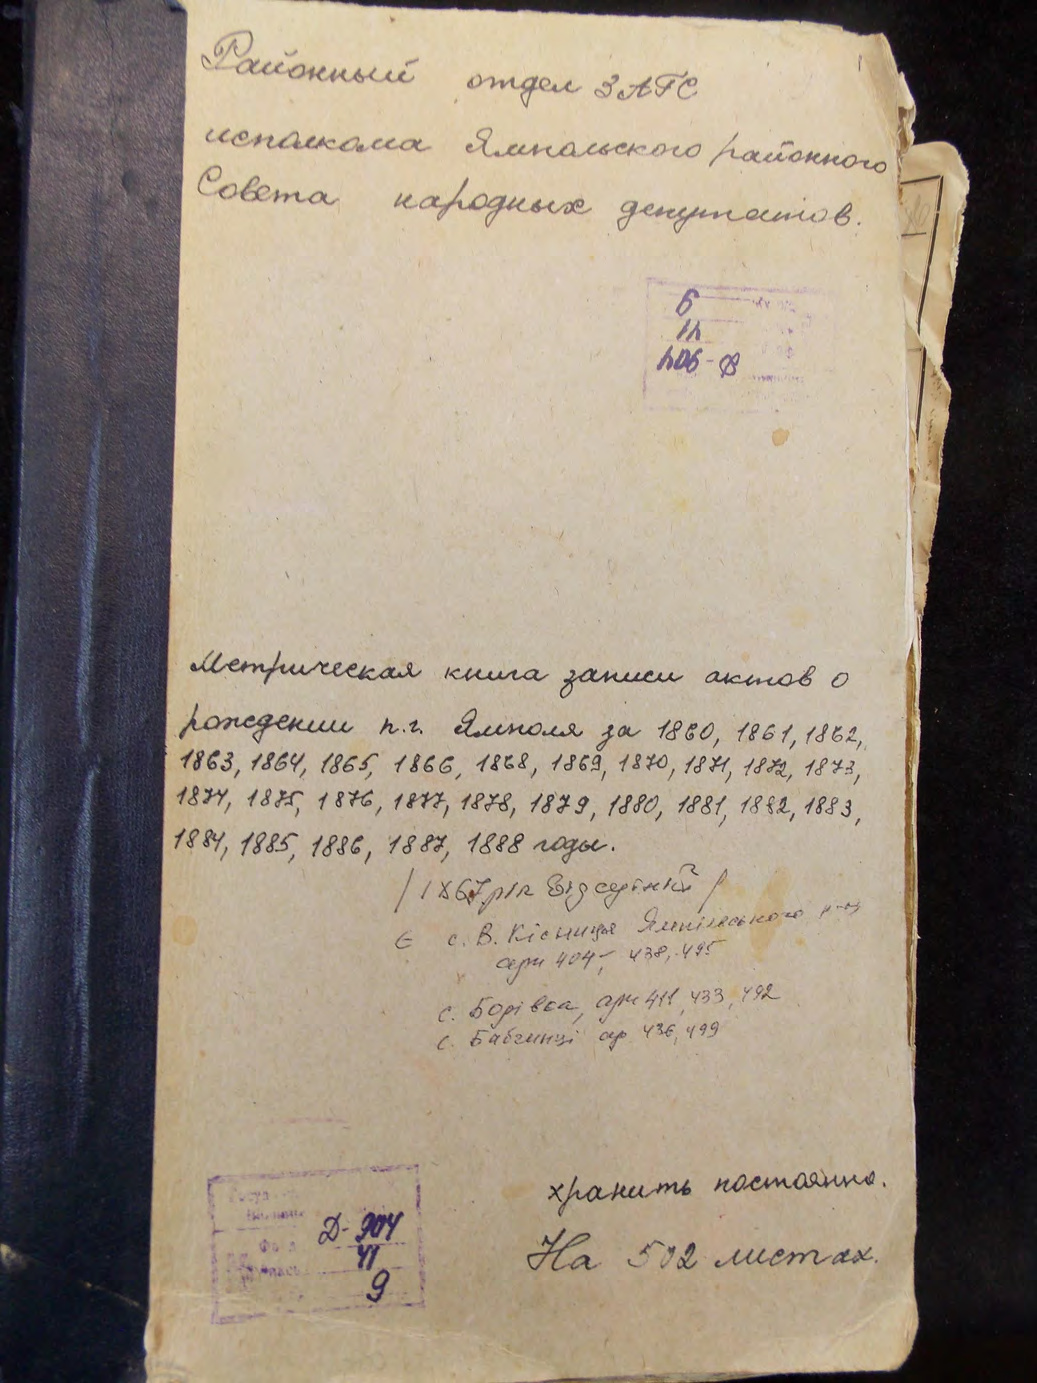 Районный отдел ЗАГС
исполкома Ямпольского районного
Совета народных депутатов.
Метрическая книга записи актов о
рождении п.г. Ямполя за 1860, 1861, 1862,
1863, 1864, 1865, 1866, 1868, 1869, 1870, 1871, 1872, 1873,
1874, 1875, 1876, 1877, 1878, 1879, 1880, 1881, 1882, 1883,
1884, 1885, 1886, 1887, 1888 годы.
/ 1867 рік відсутній /
Є с. В. Кісниця Ямпільського р-ну
арк 404, 438, 495
с. Борівка, арк 411, 433, 492
с. Бабчинці ар 436, 499
хранить постоянно.
На 502 листах.
Д-904
41
9